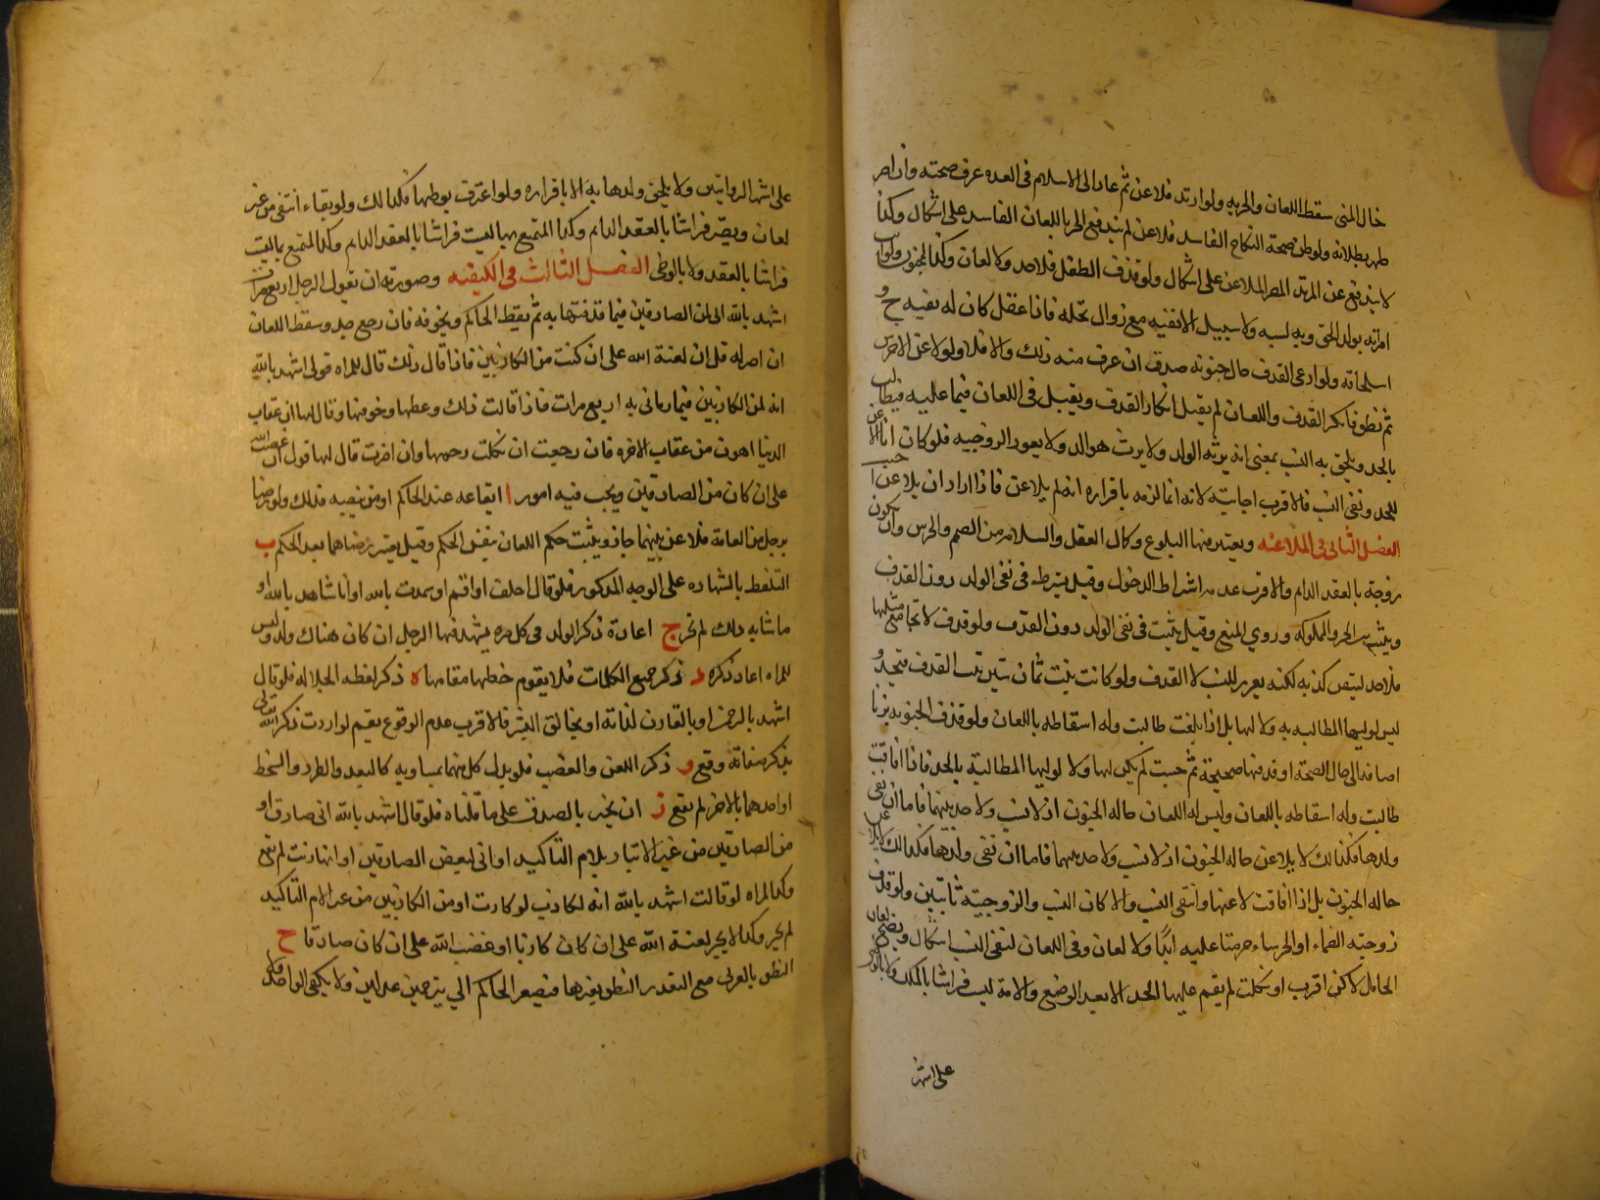 خال المنى سقط اللعان والحريه ولو ارتد فلاعن ثم عاد الى الاسلام فى العده عرف صحته وان اصر
ظهر بطلانه ولو ظن صحة النكاح الفاسد فلاعن لم يندفع الحد باللعان الفاسد على اشكال وكذا
لا يندفع عن المرتد المصر الملاعن على اشكال ولو قذف الطفل فلا حد ولا لعان وكذا المجنون ولو اتت
امراته بولد لحق به نسبه ولا سبيل الا نفيه مع زوال عقله فاذا عقل كان له نفيه ح و
استلحاقه ولو ادعى القذف حال جنونه صدق ان عرف منه ذلك والا فلا ولو لاعن الاخرس
ثم نطق فانكر القذف واللعان لم يقبل انكار القذف ويقبل فى اللعان فيما عليه فيطالب
بالحد ويلحق به النسب بمعنى انه يرثه الولد ولا يرث هو الولد ولا يعود الزوجيه فلو كان انا الاعن
للحد ونفى النسب فالاقرب اجابته لانه انما لزمه باقراره انه لم يلاعن فاذا اراد ان يلاعن اجيب
الفصل الثانى فى الملاعنه ويعتبر فيها البلوغ وكمال العقل والسلامه من الصم والخرس وان تكون
زوجة بالعقد الدايم والاقرب عدم اشتراط الدخول وقيل يشترط فى نفى الولد دون القذف
ويثبت بين الحر والمملوكه وروي المنع وقيل يثبت فى نفى الولد دون القذف ولو قذف لا تجامع مثلها
فلا حد لتيقن كذبه لكنه يعزر للسب لا القذف ولو كانت بنت ثمان سنين ثبت القذف فيحد و
ليس لوليها المطالبه به ولا لها بل اذا بلغت طالبت وله اسقاطه باللعان ولو قذف المجنونه بزنا
اضافه الى حال الصحة او قذفها صحيحة ثم جنت لم يكن لها ولا لوليها المطالبة بالحد فاذا افاقت
طالبت وله اسقاطه باللعان وليس له اللعان حاله الجنون اذ لا نسب ولا حد بينهما فاما ان نفى
ولدها فكذلك لا يلاعن حاله الجنون اذ لا نسب ولا حد بينهما فاما ان نفى ولدها فكذلك لا يلاعن
حاله الجنون بل اذا افاقت لاعنها وانتفى النسب والا كان النسب والزوجيّة ثابتين ولو قذف
زوجته الصّماء او الخرساء حرمتا عليه ابدًا ولا لعان وفى اللعان لنفى النسب اشكال ويصح لعان
الحامل لكن اقرب او نكلت لم يقم عليها الحد الا بعد الوضع والامة ليست فراشا بالملك ولا بالوطى
على اشهر
على اشهر الروايتين ولا يلحق ولدها به الا باقراره ولو اعترف بوطيها فكذلك ولو نفاه انتفى من غير
لعان ويصير فراشا بالعقد الدايم وكذا المتمتع بها ليست فراشا بالعقد الدايم وكذا المتمتع بها ليست
فراشا بالعقد ولا بالوطى الفصل الثالث فى الكيفيه وصورته ان تقول الرجل اربع مرات
اشهد بالله انى لمن الصادقين فيما قذفتها به ثم يعظه الحاكم ويخوفه فان رجع حد وسقط اللعان
ان اصر له قل ان لعنة الله على ان كنت من الكاذبين فاذا قال ذلك قال للمراه قولى اشهد بالله
انه لمن الكاذبين فيما رمانى به اربع مرات فاذا قالت ذلك وعظها وخوفها وقال لها ان عقاب
الدنيا اهون من عقاب الاخره فان رجعت ان نكلت رجمها وان اصرت قال لها قول ان غضب الله
على ان كان من الصادقين ويجب فيه امور ا ايقاعه عند الحاكم او من ينصبه فذلك ولو تراضيا
برجل من العامة فلاعن بينهما جاز ويثبت حكم اللعان بنفس الحكم وقيل يعتبر رضاهما بعد الحكم ب
التلفظ بالشهاده على الوجه المذكور فلو قال احلف او اقسم او شهدت بالله او انا شاهد بالله او
ما شابه ذلك لم تجز ج اعادة ذكر الولد فى كل مره يشهد فيها الرجل ان كان هناك ولد وليس
للمراه اعاد ذكره د ذكر جميع الكلمات فلا يقوم معظمها مقامها ه ذكر لفظه الجلاله فلو قال
اشهد بالرحمن او بالقادر لذاته او بخالق البشر فالاقرب عدم الوقوع نعم لو اردت ذكر الله تعالى
بذكر صفاته وقع و ذكر اللعن والغضب فلو بدل كل منهما بمساويه كالبعد والطرد والسخط
او احدهما بالاخر لم يقع ز ان يخبر بالصدق على ما قلناه فلو قال اشهد بالله انى صادق او
من الصادقين من غير الاتيان بلام التاكيد او انى لبعض الصادقين او انها زنت لم يقع
وكذا المراه لو قالت اشهد بالله انه لكاذب لو كاذب او من الكاذبين من غير لام التاكيد
لم يجز وكذا لا يجز لعنة الله على ان كان كاذبا او غضب الله على ان كان صادقا ح
النطق بالعربى مع القدره النطق بغيرها فيفتقر الحاكم الى مترجمين عدلين ولا يكفى الواحد